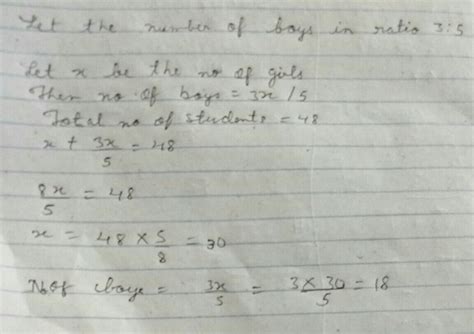 Let the number of boys in ratio 3:5
Let x be the no of girls
Then no. of boys = 3x/5
Total no of students = 48
x + 3x/5 = 48
8x/5 = 48
x = 48 × 5/8 = 30
No of boys = 3x/5 = 3×30/5 = 18